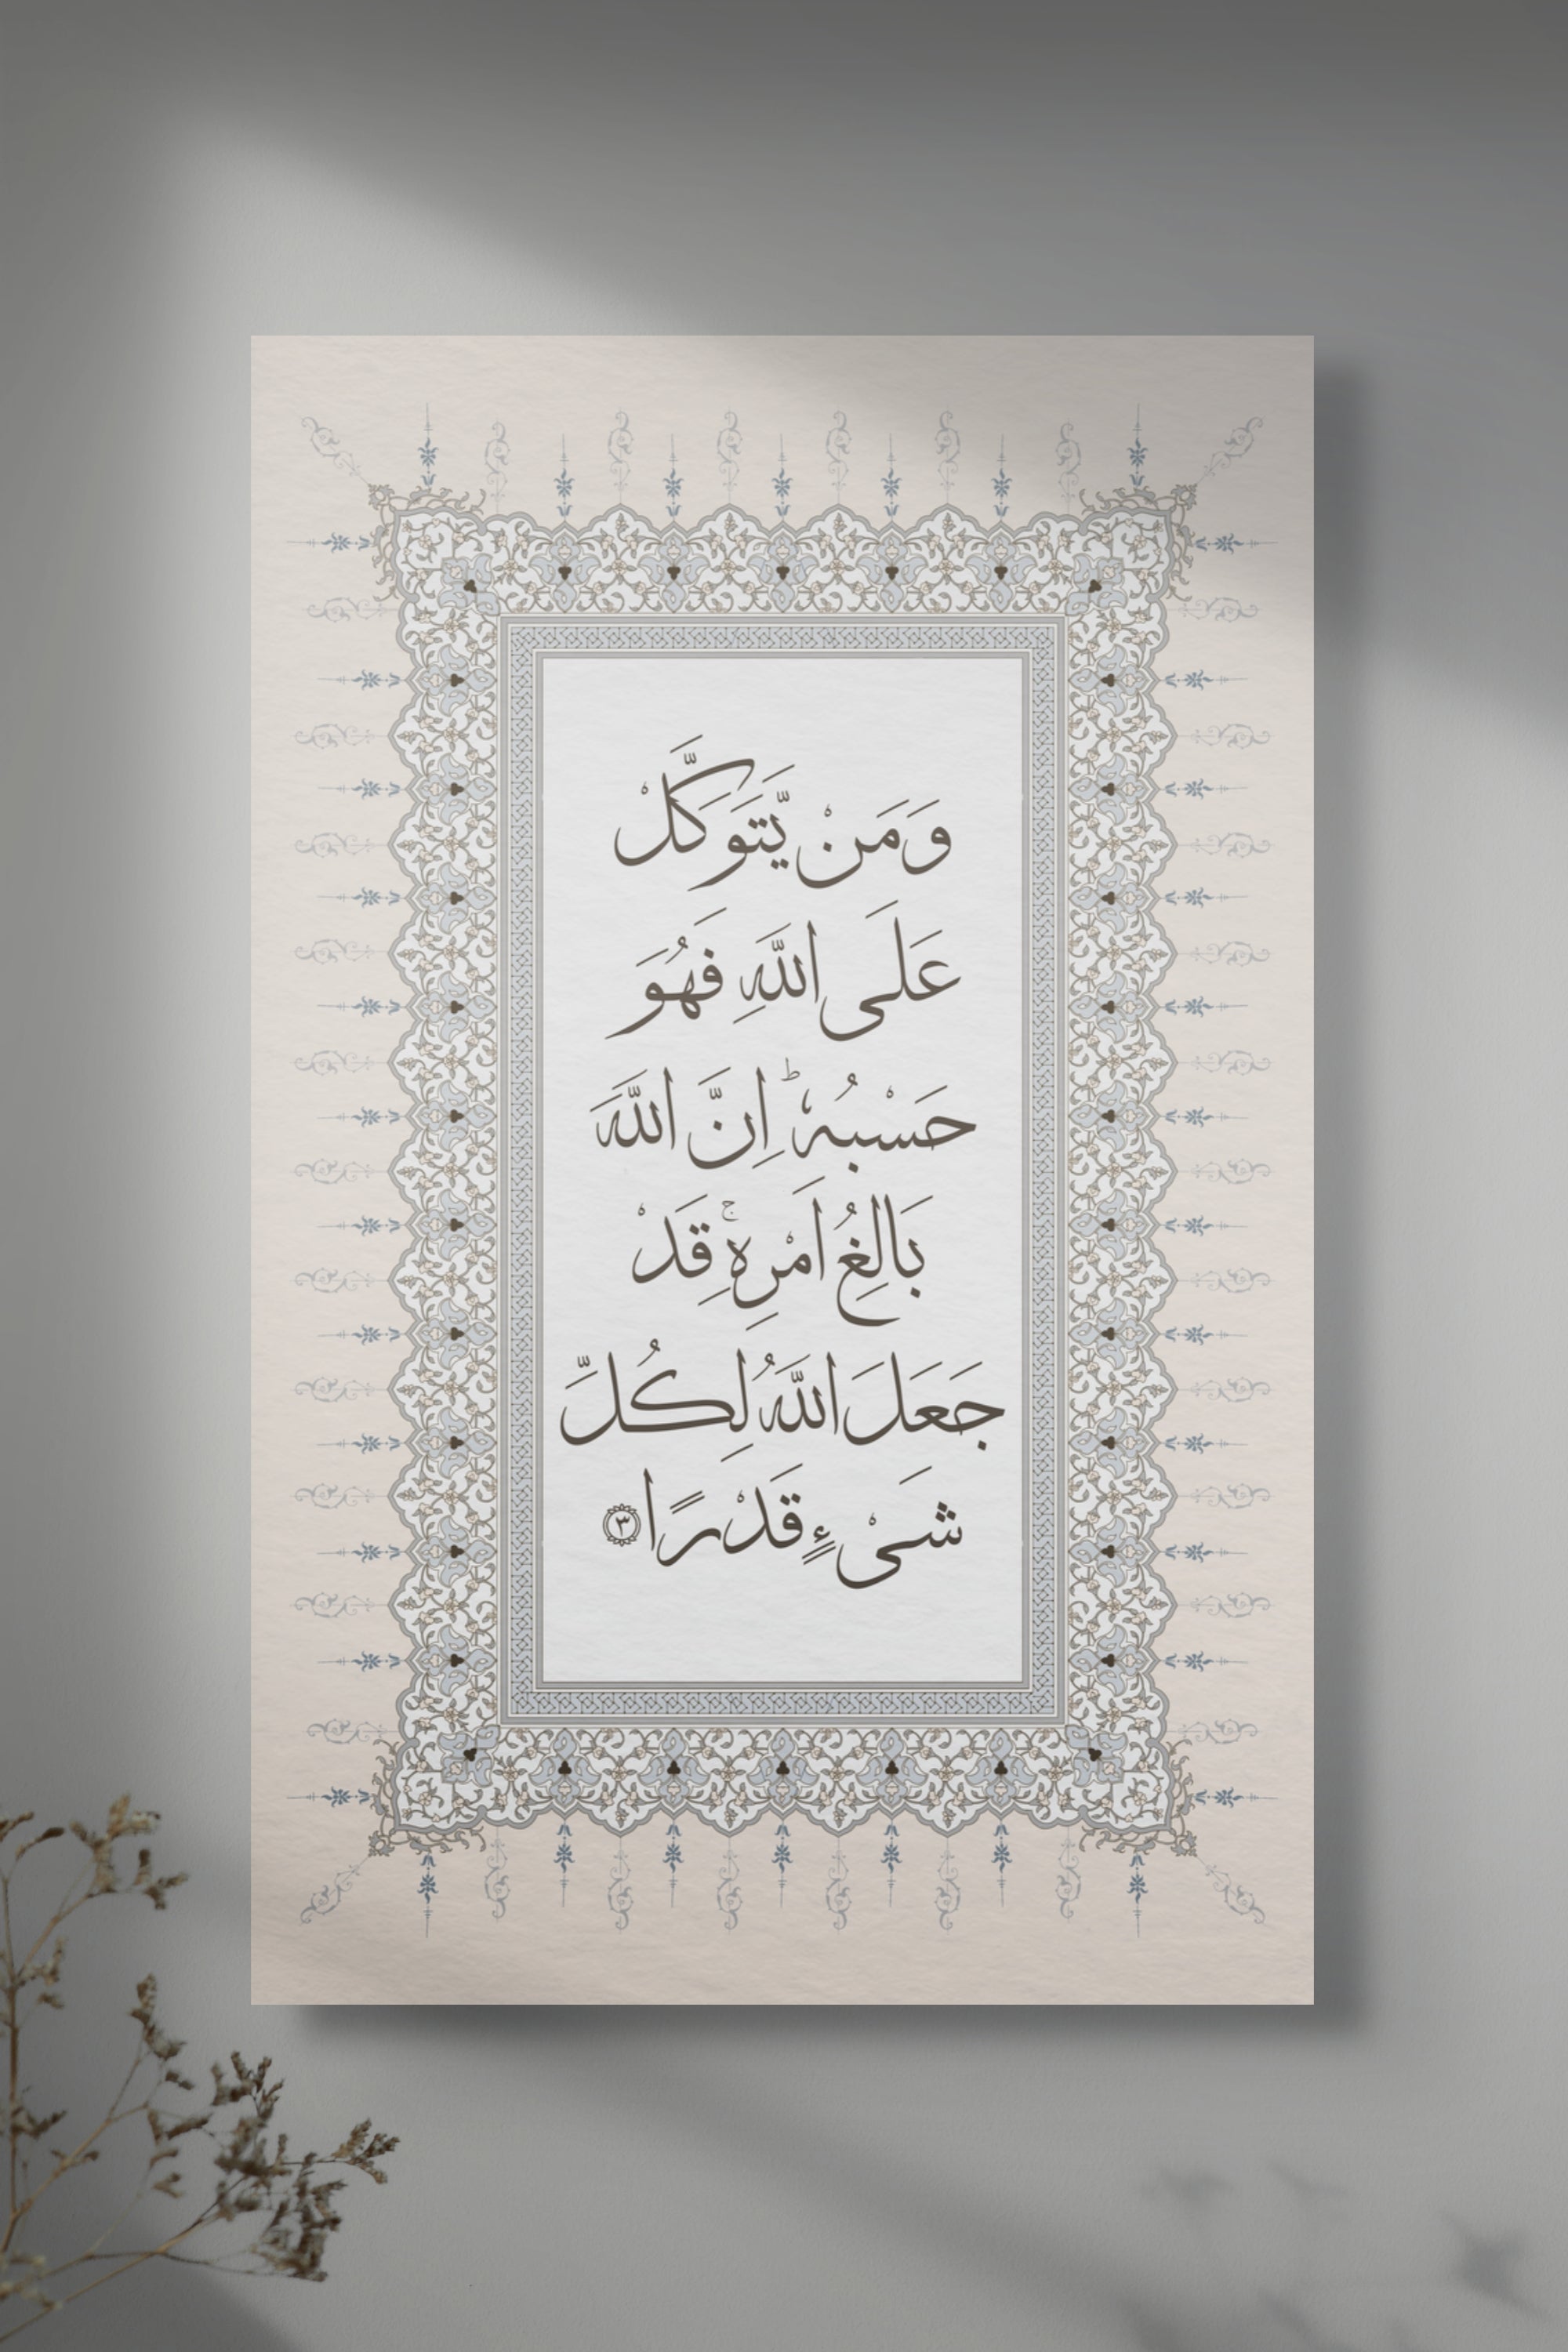 وَمَنْ يَّتَوَكَّلْ
عَلَى اللّٰهِ فَهُوَ
حَسْبُهٗ ؕ اِنَّ اللّٰهَ
بَالِغُ اَمْرِهٖ ۚ قَدْ
جَعَلَ اللّٰهُ لِكُلِّ
شَیْءٍ قَدْرًا ﴿۳﴾